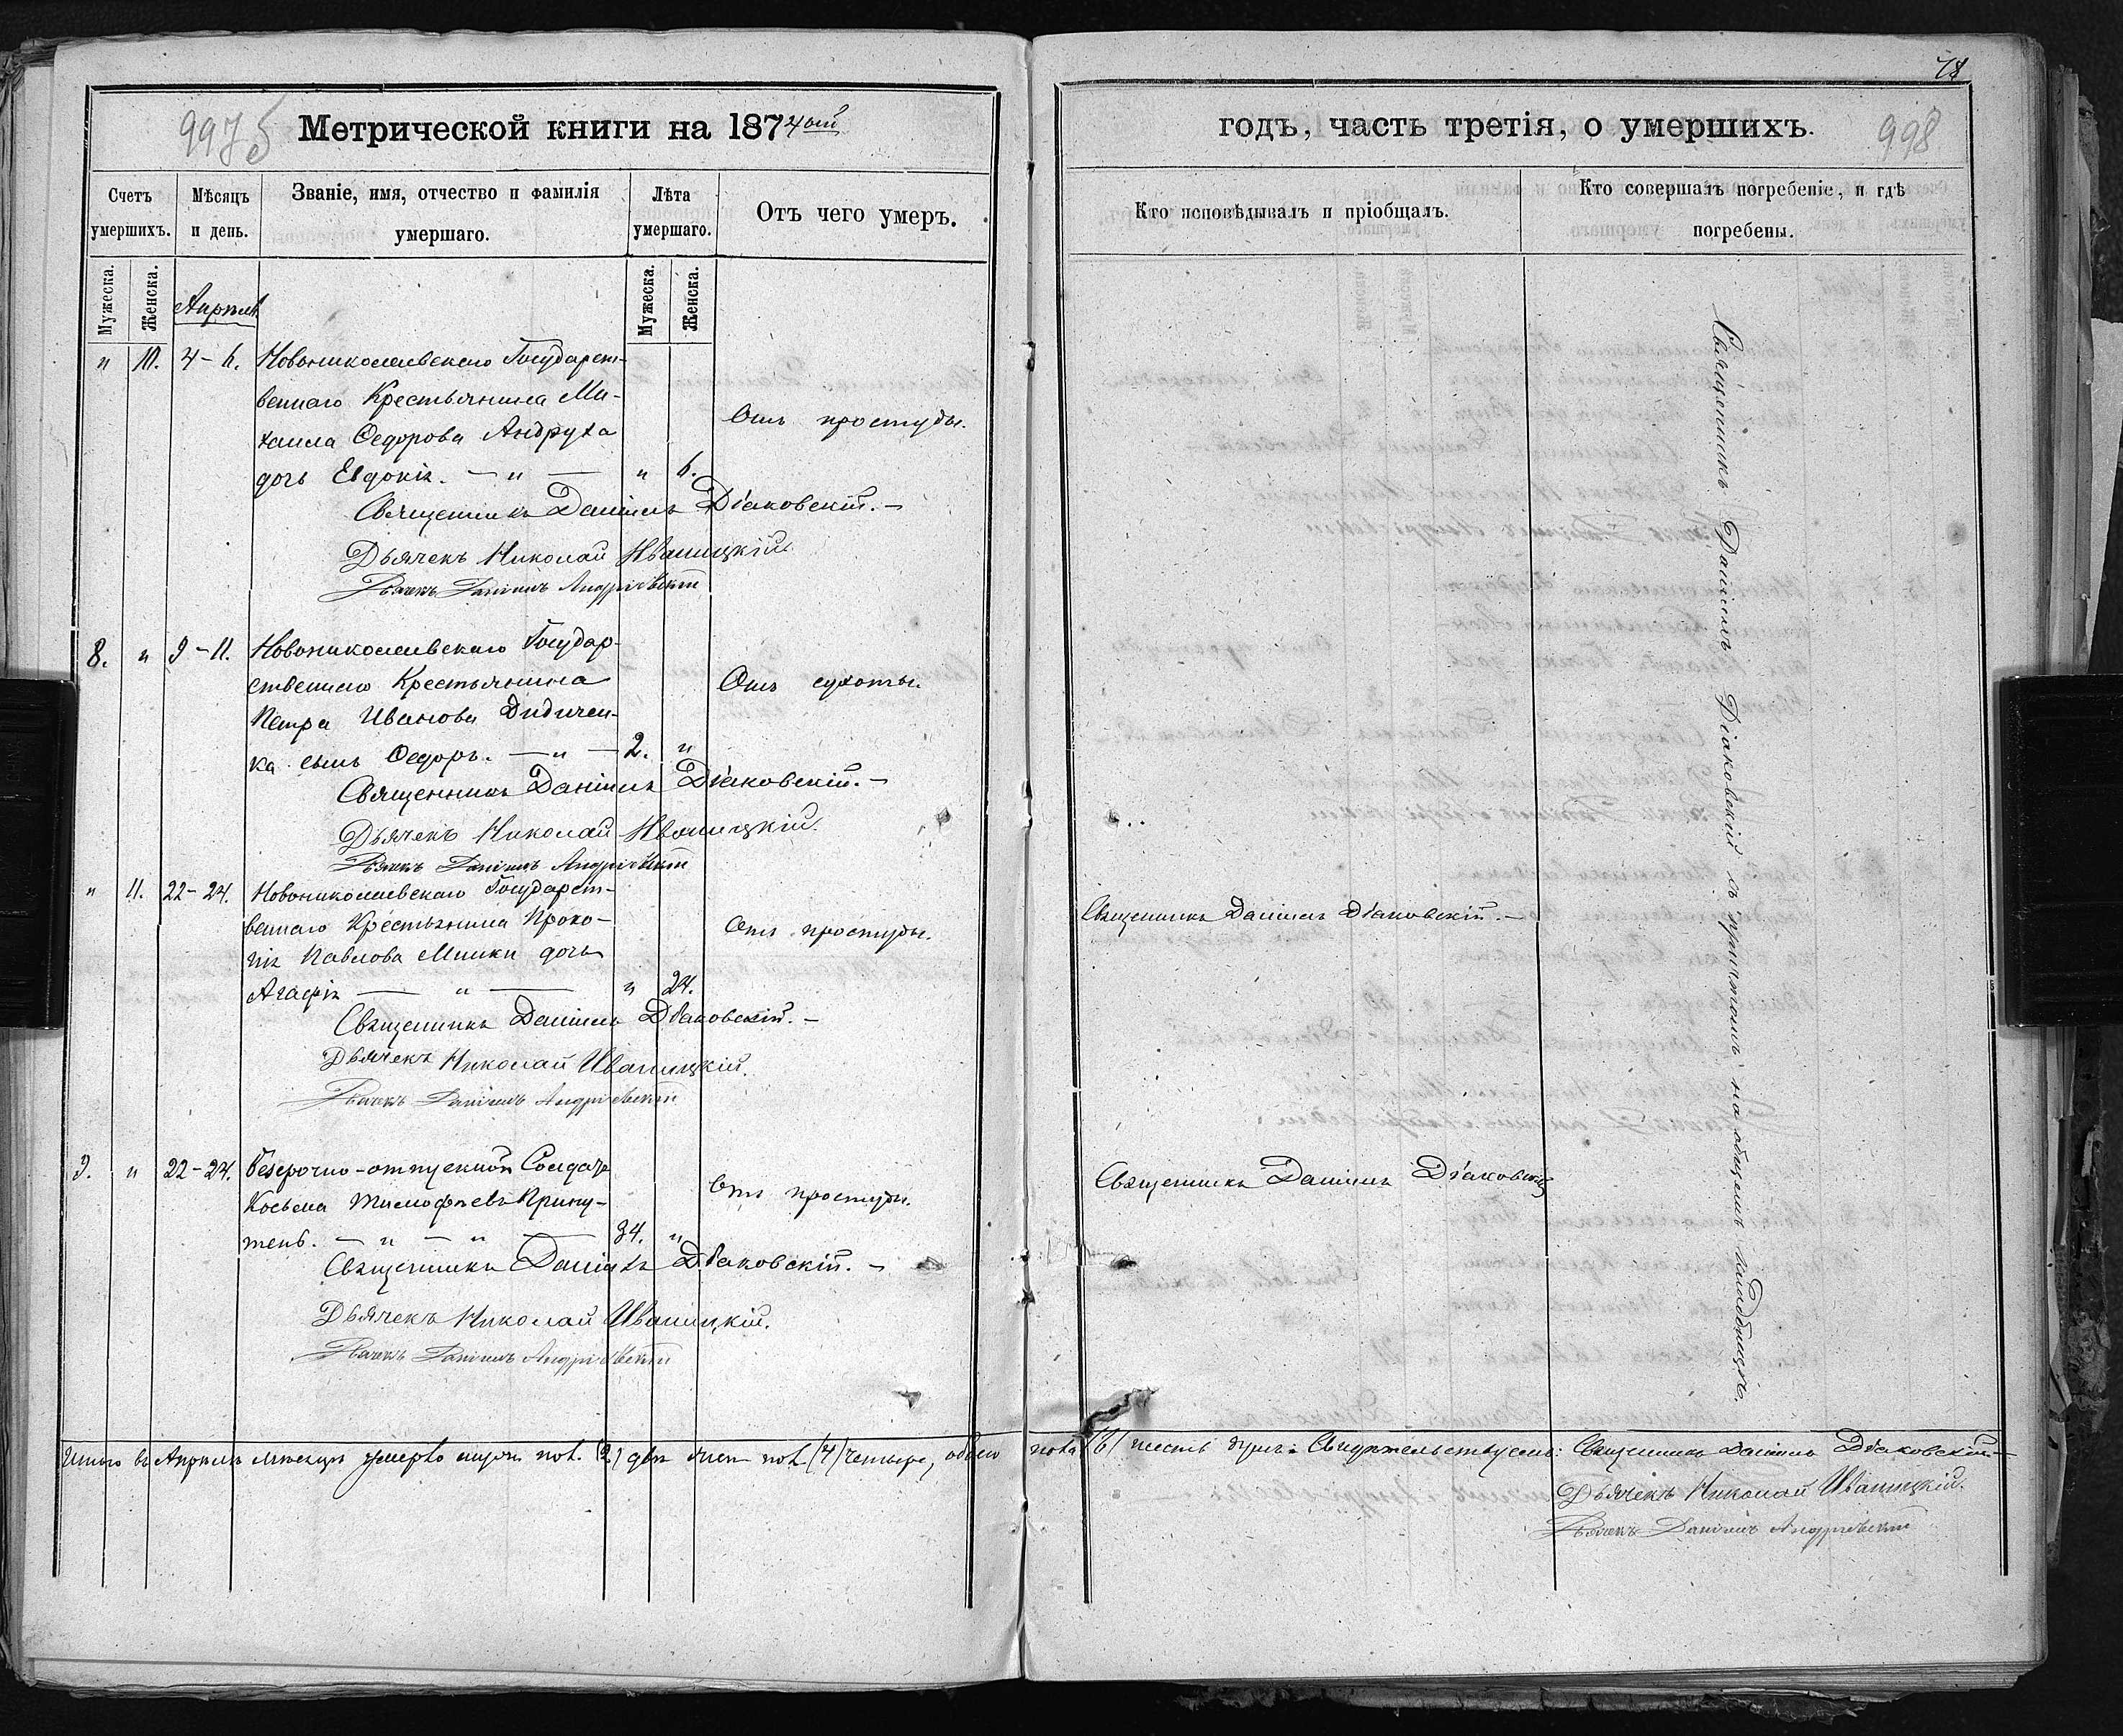 78
997
Метрической книги на 1874ый
годъ, часть третія, о умершихъ.
998
Счетъ умершихъ.
Мѣсяцъ и день.
Званіе, имя, отчество и фамилія умершаго.
Лѣта умершаго.
Отъ чего умеръ.
Кто исповѣдывалъ и пріобщалъ.
Кто совершалъ погребеніе, и гдѣ погребены.
Мужеска.
Женска.
Мужеска.
Женска.
Апрѣль
" 10. 4-6. Новониколаевскаго Государст-
веннаго Крестьянина Ми-
хаила Ѳедорова Андруха
дочь Евдокія. — " — " 6.
Отъ простуды.
Священникъ Даніилъ Діаковскій. —
Дьячекъ Николай Иваницкій
Дьячекъ Даніилъ Андріевскій
8. " 9-11. Новониколаевскаго Государ-
ственнаго Крестьянина
Петра Иванова Дидичен-
ка сынъ Ѳедоръ. — " — 2. "
Отъ сухоты.
Священникъ Даніилъ Діаковскій. —
Дьячекъ Николай Иваницкій.
Дьячекъ Даніилъ Андріевскій
" 11. 22-24. Новониколаевскаго Государст-
веннаго Крестьянина Проко-
пія Павлова Мишки дочь
Агафія — " — " 24.
Отъ простуды.
Священникъ Даніилъ Діаковскій. —
Священникъ Даніилъ Діаковскій. —
Дьячекъ Николай Иваницкій.
Дьячекъ Даніилъ Андріевскій
9. " 22-24. Безсрочно-отпускной Солдатъ
Косьма Тимофѣевъ Прику-
тень. — " — " — 34. "
Отъ простуды.
Священникъ Даніилъ Діаковскій
Священникъ Даніилъ Діаковскій. —
Дьячекъ Николай Иваницкій.
Дьячекъ Даніилъ Андріевскій
Священникъ Даніилъ Діаковскій съ причтомъ на общемъ кладбищѣ.
Итого въ Апрѣлѣ мѣсяцѣ умерло муж. пол. (2) два жен. пол. (4) четыре, обоего пола (6) шесть душъ. Свидѣтельствуемъ: Священникъ Даніилъ Діаковскій —
Дьячекъ Николай Иваницкій.
Дьячекъ Даніилъ Андріевскій